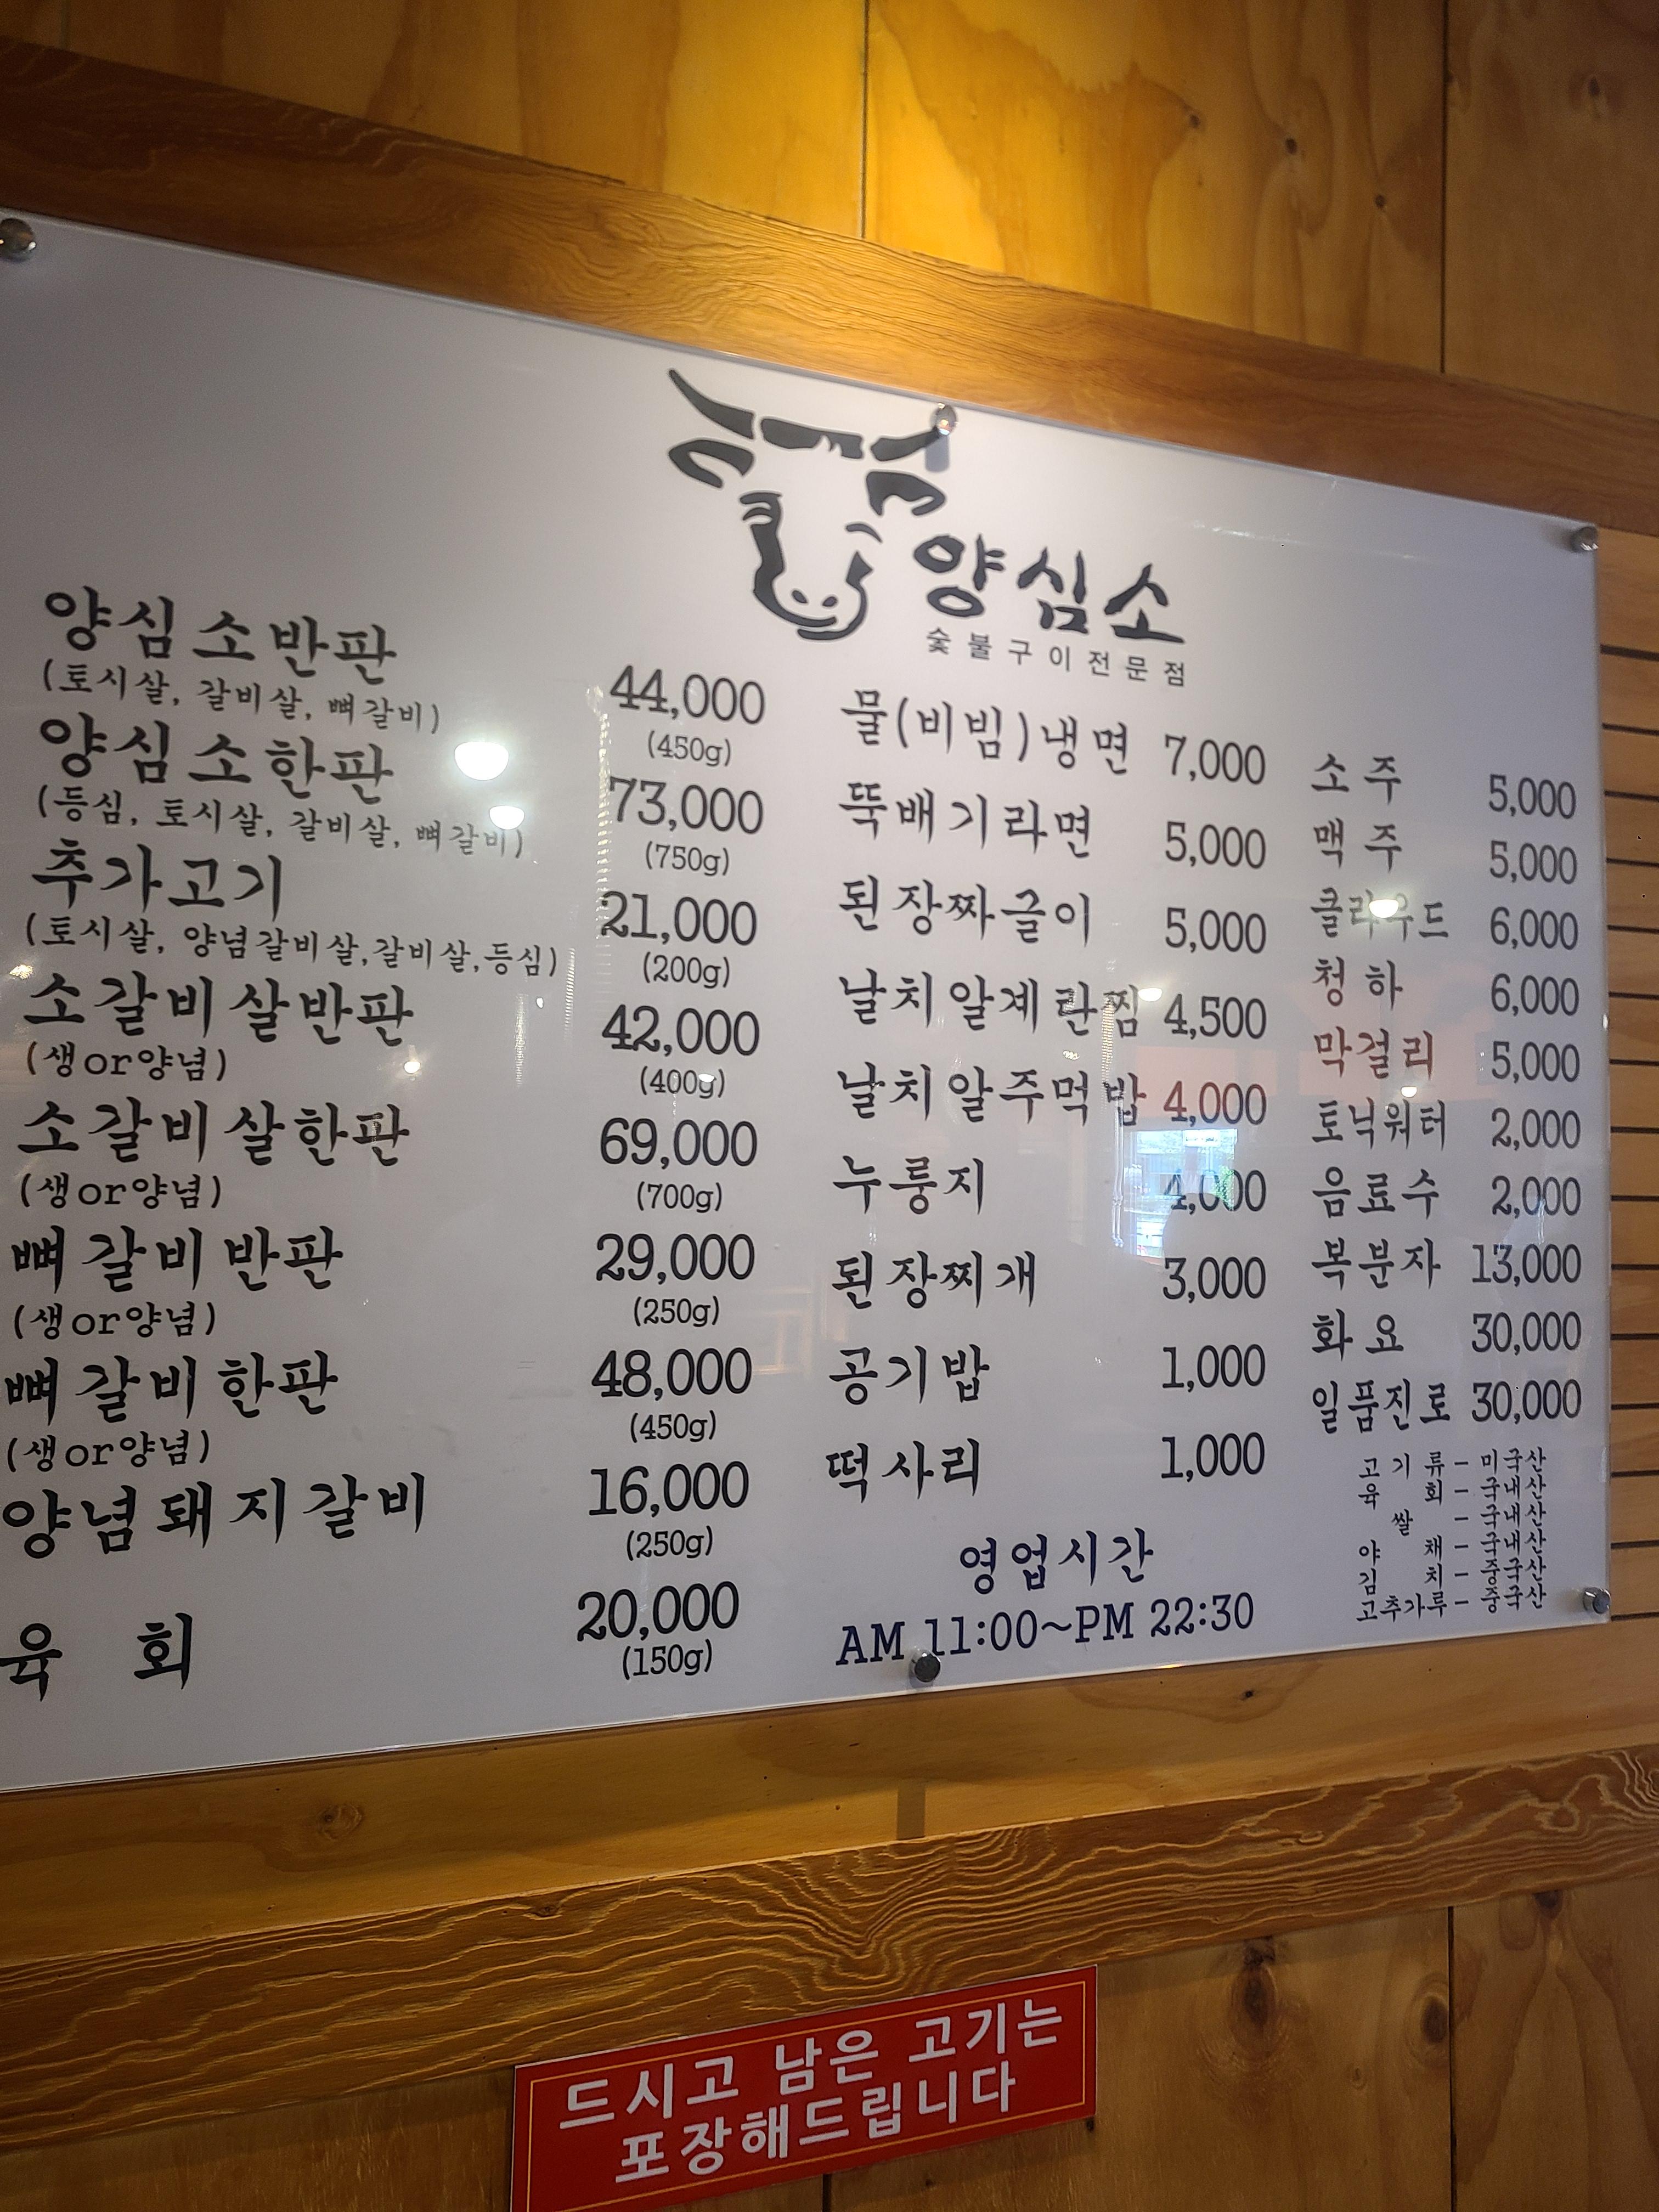 양심소
숯불구이전문점
양심소반판 44,000
(토시살, 갈비살, 뼈갈비) (450g)
양심소한판 73,000
(등심, 토시살, 갈비살, 뼈갈비) (750g)
추가고기 21,000
(토시살, 양념갈비살,갈비살,등심) (200g)
소갈비살반판 42,000
(생or양념) (400g)
소갈비살한판 69,000
(생or양념) (700g)
뼈갈비반판 29,000
(생or양념) (250g)
뼈갈비한판 48,000
(생or양념) (450g)
양념돼지갈비 16,000
(250g)
육 회 20,000
(150g)
물(비빔)냉면 7,000
뚝배기라면 5,000
된장짜글이 5,000
날치알계란찜 4,500
날치알주먹밥 4,000
누룽지 4,000
된장찌개 3,000
공기밥 1,000
떡사리 1,000
영업시간
AM 11:00~PM 22:30
소주 5,000
맥주 5,000
클라우드 6,000
청하 6,000
막걸리 5,000
토닉워터 2,000
음료수 2,000
복분자 13,000
화요 30,000
일품진로 30,000
고기류 - 미국산
육회 - 국내산
쌀 - 국내산
야채 - 국내산
김치 - 중국산
고추가루 - 중국산
드시고 남은 고기는
포장해드립니다